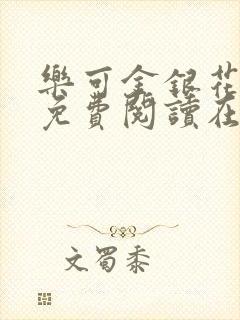 樂可金銀花
免費閱讀在
文蜀黍